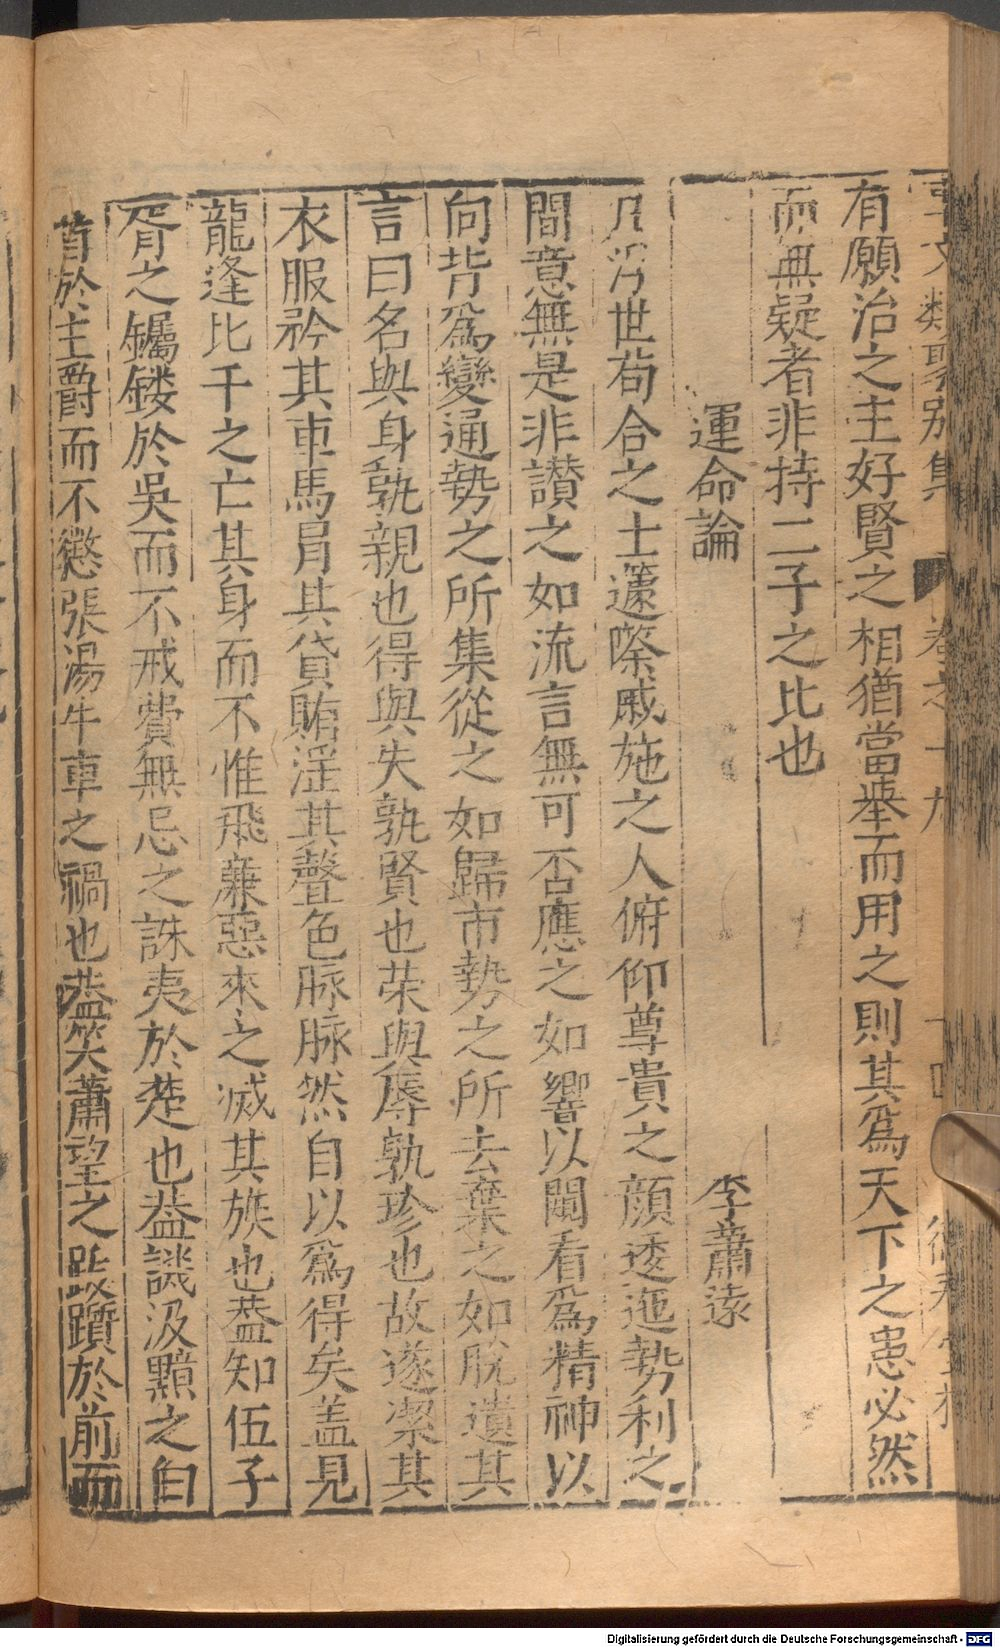 類聚別集 卷之十九
有願治之主好賢之相猶當舉而用之則其爲天下之患必然
而無疑者非持二子之比也
運命論 李蕭遠
凡浮世苟合之士籧嚓戚施之人俯仰尊貴之顔逶迤勢利之
間意無是非讃之如流言無可否應之如響以闚看爲精神以
向背爲變通勢之所集從之如歸市勢之所去棄之如脫遺其
言曰名與身孰親也得與失孰賢也荣與辱孰珍也故遂潔其
衣服矜其車馬肩其貸賄淫其聲色脉脉然自以爲得矣盖見
龍逢比干之亡其身而不惟飛亷惡來之滅其族也葢知伍子
胥之钃鏤於吳而不戒費無忌之誅夷於楚也葢譏汲黯之白
首於主爵而不懲張湯牛車之禍也葢笑蕭望之跋躓於前而
Digitalisierung gefördert durch die Deutsche Forschungsgemeinschaft - DFG